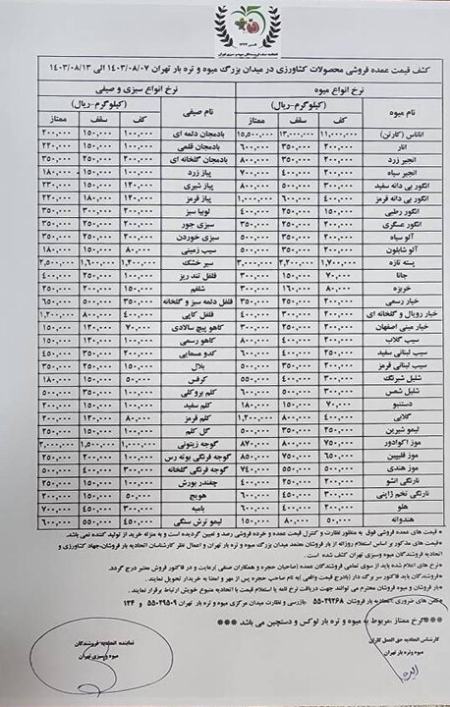 کشف قیمت عمده فروشی محصولات کشاورزی در میدان بزرگ میوه و تره بار تهران ۱۴۰۳/۰۸/۰۷ الی ۱۴۰۳/۰۸/۱۳
نرخ انواع میوه نرخ انواع سبزی و صیفی
نام میوه (کیلوگرم-ریال) نام صیفی (کیلوگرم-ریال)
کف سقف ممتاز کف سقف ممتاز
آناناس (کارتن) ۱۱,۰۰۰,۰۰۰ ۱۳,۰۰۰,۰۰۰ ۱۵,۵۰۰,۰۰۰ بادمجان دلمه ای ۱۰۰,۰۰۰ ۱۵۰,۰۰۰ ۲۰۰,۰۰۰
انار ۲۰۰,۰۰۰ ۳۵۰,۰۰۰ ۶۰۰,۰۰۰ بادمجان قلمی ۱۰۰,۰۰۰ ۱۵۰,۰۰۰ ۲۲۰,۰۰۰
انجیر زرد ۲۰۰,۰۰۰ ۳۵۰,۰۰۰ ۸۰۰,۰۰۰ بادمجان گلخانه ای ۲۰۰,۰۰۰ ۲۵۰,۰۰۰ ۳۵۰,۰۰۰
انجیر سیاه ۲۰۰,۰۰۰ ۴۰۰,۰۰۰ ۷۰۰,۰۰۰ پیاز زرد ۱۰۰,۰۰۰ ۱۵۰,۰۰۰ ۱۸۰,۰۰۰
انگور بی دانه سفید ۳۰۰,۰۰۰ ۵۰۰,۰۰۰ ۸۰۰,۰۰۰ پیاز شیری ۱۲۰,۰۰۰ ۱۵۰,۰۰۰ ۲۳۰,۰۰۰
انگور بی دانه قرمز ۴۰۰,۰۰۰ ۶۰۰,۰۰۰ ۱,۰۰۰,۰۰۰ پیاز قرمز ۱۲۰,۰۰۰ ۱۸۰,۰۰۰ ۲۲۰,۰۰۰
انگور رطبی ۱۵۰,۰۰۰ ۲۵۰,۰۰۰ ۴۰۰,۰۰۰ لوبیا سبز ۲۰۰,۰۰۰ ۳۰۰,۰۰۰ ۳۵۰,۰۰۰
انگور عسگری ۲۰۰,۰۰۰ ۲۵۰,۰۰۰ ۳۵۰,۰۰۰ سبزی جور ۲۰۰,۰۰۰ ۲۵۰,۰۰۰ ۳۵۰,۰۰۰
آلو سیاه ۲۰۰,۰۰۰ ۳۵۰,۰۰۰ ۵۰۰,۰۰۰ سبزی خوردن ۲۰۰,۰۰۰ ۲۵۰,۰۰۰ ۳۵۰,۰۰۰
آلو شابلون ۲۰۰,۰۰۰ ۳۵۰,۰۰۰ ۵۰۰,۰۰۰ سیب زمینی ۸۰,۰۰۰ ۱۵۰,۰۰۰ ۱۸۰,۰۰۰
پسته تازه ۱,۷۰۰,۰۰۰ ۲,۲۰۰,۰۰۰ ۳,۰۰۰,۰۰۰ سیر خشک ۱,۴۰۰,۰۰۰ ۱,۶۰۰,۰۰۰ ۲,۵۰۰,۰۰۰
جانا ۷۰,۰۰۰ ۱۵۰,۰۰۰ ۳۰۰,۰۰۰ فلفل تند ریز ۱۰۰,۰۰۰ ۲۵۰,۰۰۰ ۴۰۰,۰۰۰
خربزه ۸۰,۰۰۰ ۱۶۰,۰۰۰ ۳۰۰,۰۰۰ شلغم ۱۵۰,۰۰۰ ۲۰۰,۰۰۰ ۲۵۰,۰۰۰
خیار رسمی ۲۰۰,۰۰۰ ۲۵۰,۰۰۰ ۳۵۰,۰۰۰ فلفل دلمه سبز و گلخانه ۳۵۰,۰۰۰ ۵۰۰,۰۰۰ ۶۵۰,۰۰۰
خیار رویال و گلخانه ای ۲۰۰,۰۰۰ ۳۰۰,۰۰۰ ۴۰۰,۰۰۰ فلفل کاپی ۴۰۰,۰۰۰ ۸۰۰,۰۰۰ ۱,۲۰۰,۰۰۰
خیار مینی اصفهان ۲۰۰,۰۰۰ ۲۵۰,۰۰۰ ۳۰۰,۰۰۰ کاهو پیچ سالادی ۷۰,۰۰۰ ۱۲۰,۰۰۰ ۱۵۰,۰۰۰
سیب گلاب ۲۰۰,۰۰۰ ۴۰۰,۰۰۰ ۸۰۰,۰۰۰ کاهو رسمی ۱۰۰,۰۰۰ ۱۵۰,۰۰۰ ۲۰۰,۰۰۰
سیب لبنانی سفید ۲۰۰,۰۰۰ ۳۰۰,۰۰۰ ۶۰۰,۰۰۰ کدو مسمایی ۲۰۰,۰۰۰ ۳۵۰,۰۰۰ ۴۵۰,۰۰۰
سیب لبنانی قرمز ۲۰۰,۰۰۰ ۳۵۰,۰۰۰ ۵۰۰,۰۰۰ بلال ۱۵۰,۰۰۰ ۲۵۰,۰۰۰ ۳۵۰,۰۰۰
شلیل شبرنگ ۳۰۰,۰۰۰ ۴۰۰,۰۰۰ ۵۵۰,۰۰۰ کرفس ۵۰,۰۰۰ ۱۵۰,۰۰۰ ۱۸۰,۰۰۰
شلیل شمس ۳۰۰,۰۰۰ ۵۰۰,۰۰۰ ۶۰۰,۰۰۰ کلم بروکلی ۱۰۰,۰۰۰ ۳۵۰,۰۰۰ ۵۰۰,۰۰۰
دستنبو ۷۰,۰۰۰ ۱۵۰,۰۰۰ ۱۸۰,۰۰۰ کلم سفید ۱۰۰,۰۰۰ ۱۵۰,۰۰۰ ۲۰۰,۰۰۰
گلابی ۴۰۰,۰۰۰ ۸۰۰,۰۰۰ ۱,۲۰۰,۰۰۰ کلم قرمز ۸۰,۰۰۰ ۱۲۰,۰۰۰ ۲۰۰,۰۰۰
لیمو شیرین ۲۵۰,۰۰۰ ۴۰۰,۰۰۰ ۵۰۰,۰۰۰ گل کلم ۱۰۰,۰۰۰ ۱۵۰,۰۰۰ ۲۵۰,۰۰۰
موز اکوادور ۷۵۰,۰۰۰ ۸۰۰,۰۰۰ ۸۷۰,۰۰۰ گوجه زیتونی ۱,۰۰۰,۰۰۰ ۱,۵۰۰,۰۰۰ ۲,۰۰۰,۰۰۰
موز فلیپین ۶۵۰,۰۰۰ ۷۵۰,۰۰۰ ۸۵۰,۰۰۰ گوجه فرنگی بوته رس ۱۰۰,۰۰۰ ۲۰۰,۰۰۰ ۲۵۰,۰۰۰
موز هندی ۵۰۰,۰۰۰ ۵۵۰,۰۰۰ ۷۴۰,۰۰۰ گوجه فرنگی گلخانه ۳۰۰,۰۰۰ ۴۰۰,۰۰۰ ۵۰۰,۰۰۰
نارنگی انشو ۲۰۰,۰۰۰ ۲۵۰,۰۰۰ ۴۰۰,۰۰۰ چغندر بورش ۱۰۰,۰۰۰ ۱۵۰,۰۰۰ ۲۵۰,۰۰۰
نارنگی تخم ژاپنی ۳۰۰,۰۰۰ ۴۵۰,۰۰۰ ۶۰۰,۰۰۰ هویج ۵۰,۰۰۰ ۱۵۰,۰۰۰ ۲۰۰,۰۰۰
هلو ۲۰۰,۰۰۰ ۴۰۰,۰۰۰ ۶۰۰,۰۰۰ بامیه ۳۰۰,۰۰۰ ۴۵۰,۰۰۰ ۷۰۰,۰۰۰
هندوانه ۵۰,۰۰۰ ۸۰,۰۰۰ ۱۵۰,۰۰۰ لیمو ترش سنگی ۴۰۰,۰۰۰ ۵۵۰,۰۰۰ ۶۰۰,۰۰۰
*قیمت های عمده فروشی فوق به منظور نظارت و کنترل قیمت عمده و خرده فروشی رصد و تعیین گردیده است و به منزله خرید از تولید کننده نمی باشد.
*قیمت های مذکور بر اساس استعلام روزانه از بار فروشان معتمد میدان بزرگ میوه و تره بار تهران و اعمال نظر کارشناسان اتحادیه بارفروشان-جهاد کشاورزی و
اتحادیه فروشندگان میوه وسبزی تهران کشف شده است.
*نرخ های اعلام شده باید از سوی تمامی فروشندگان عمده (صاحبان حجره و همکاران صنفی) رعایت و در فاکتور فروش معتبر درج گردد.
*فروشندگان باید فاکتور سر برگ دار (بادرج قیمت واقعی) به نام صاحب حجره پس از مهر و امضا به خریدار تحویل نمایند.
*بار فروشان و میوه فروشان محترم می توانند جهت دریافت نرخ نامه یا استعلام قیمت با اتحادیه متبوع خویش ارتباط برقرار نمایند.
*تلفن های ضروری :اتحادیه بار فروشان ۵۵۰۲۹۲۶۸ بازرسی و نظارت میدان مرکزی میوه و تره بار تهران ۵۵۰۲۹۵۰۹ و ۱۲۴
***نرخ ممتاز ،مربوط به میوه و تره بار لوکس و دستچین می باشد ***
کارشناس اتحادیه حق العمل کاران
میوه وتره بار تهران
نماینده اتحادیه فروشندگان
میوه وسبزی تهران